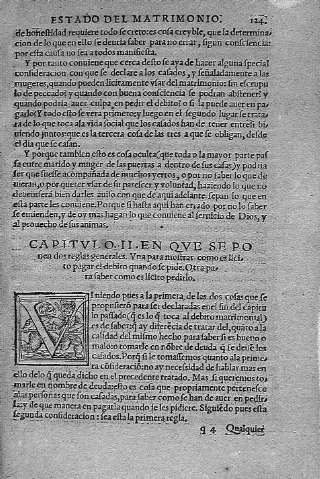 ESTADO DEL MATRIMONIO. 124.
de honestidad requiere todo secreto: es cosa creyble, que la determina-
cion de lo que en ello se deuria saber para no errar, segun consciencia:
por esta causa no sea a todos manifiesta.
Y por tanto conuiene que cerca desto se aya de hazer alguna special
consideracion con que se declare a los casados, y señaladamente a las
mugeres, quando pueden licitamente vsar del matrimonio: sin escrupu
lo de peccado: y quando con buena consciencia se podran abstener: y
quando podria auer culpa en pedir el debito: o si la puede auer en pa-
garlo: Y todo esto se vera primero: y luego en el segundo lugar se trata-
ra de lo que toca a la vida social que los casados han de tener entre si bi-
uiendo juntos: que es la tercera cosa de las tres a que se obligan, desde
el dia que se casan.
Y porque tambien esto es cosa oculta: que toda o la mayor parte pas
sa entre marido y muger de las puertas a dentro de sus casas, y podria
ser que fuesse acompañada de muchos yerros, o por no saber lo que de
uerian, o por querer viar de su parescer y voluntad, haziendo lo que no
deuen:
sera bien darles auiso con que de aqui adelante sepan lo que en
esta parte les conuiene. Porque si hasta aqui han errado por no lo saber
se emienden, y de oy mas hagan lo que conuiene al seruicio de Dios, y
al prouecho de sus animas.
CAPITVLO. II. EN QVE SE PO
nen dos reglas generales. Vna para mostrar como es lici-
to pagar el debito quando se pide. Otra pa-
ra saber como es licito pedirlo.
VIniendo pues a la primera, de las dos cosas que se
propusieron para se declaradas en el fin del capitu
lo passado, q es lo q toca al debito matrimonial: y
es de saber q ay diferēcia de tratar del, quāto a la
calidad del mismo hecho para saber si es bueno o
malo: o tomarle en nōbre de deuda q se deuē los
casados. Porq si le tomassemos quanto a la prime-
ra consideraciō: no ay necessidad de hablar mas en
ello de lo q queda dicho en el precedente tratado. Mas si queremos to-
marle en nombre de deuda: esto es cosa que propriamente pertenesce
a las personas que son casadas, para saber como se han de auer en pedir-
la: y de que manera en pagarla quando se les pidiere. Siguiēdo pues esta
segunda consideracion: sea esta la primera regla.
q 4 Qualquier